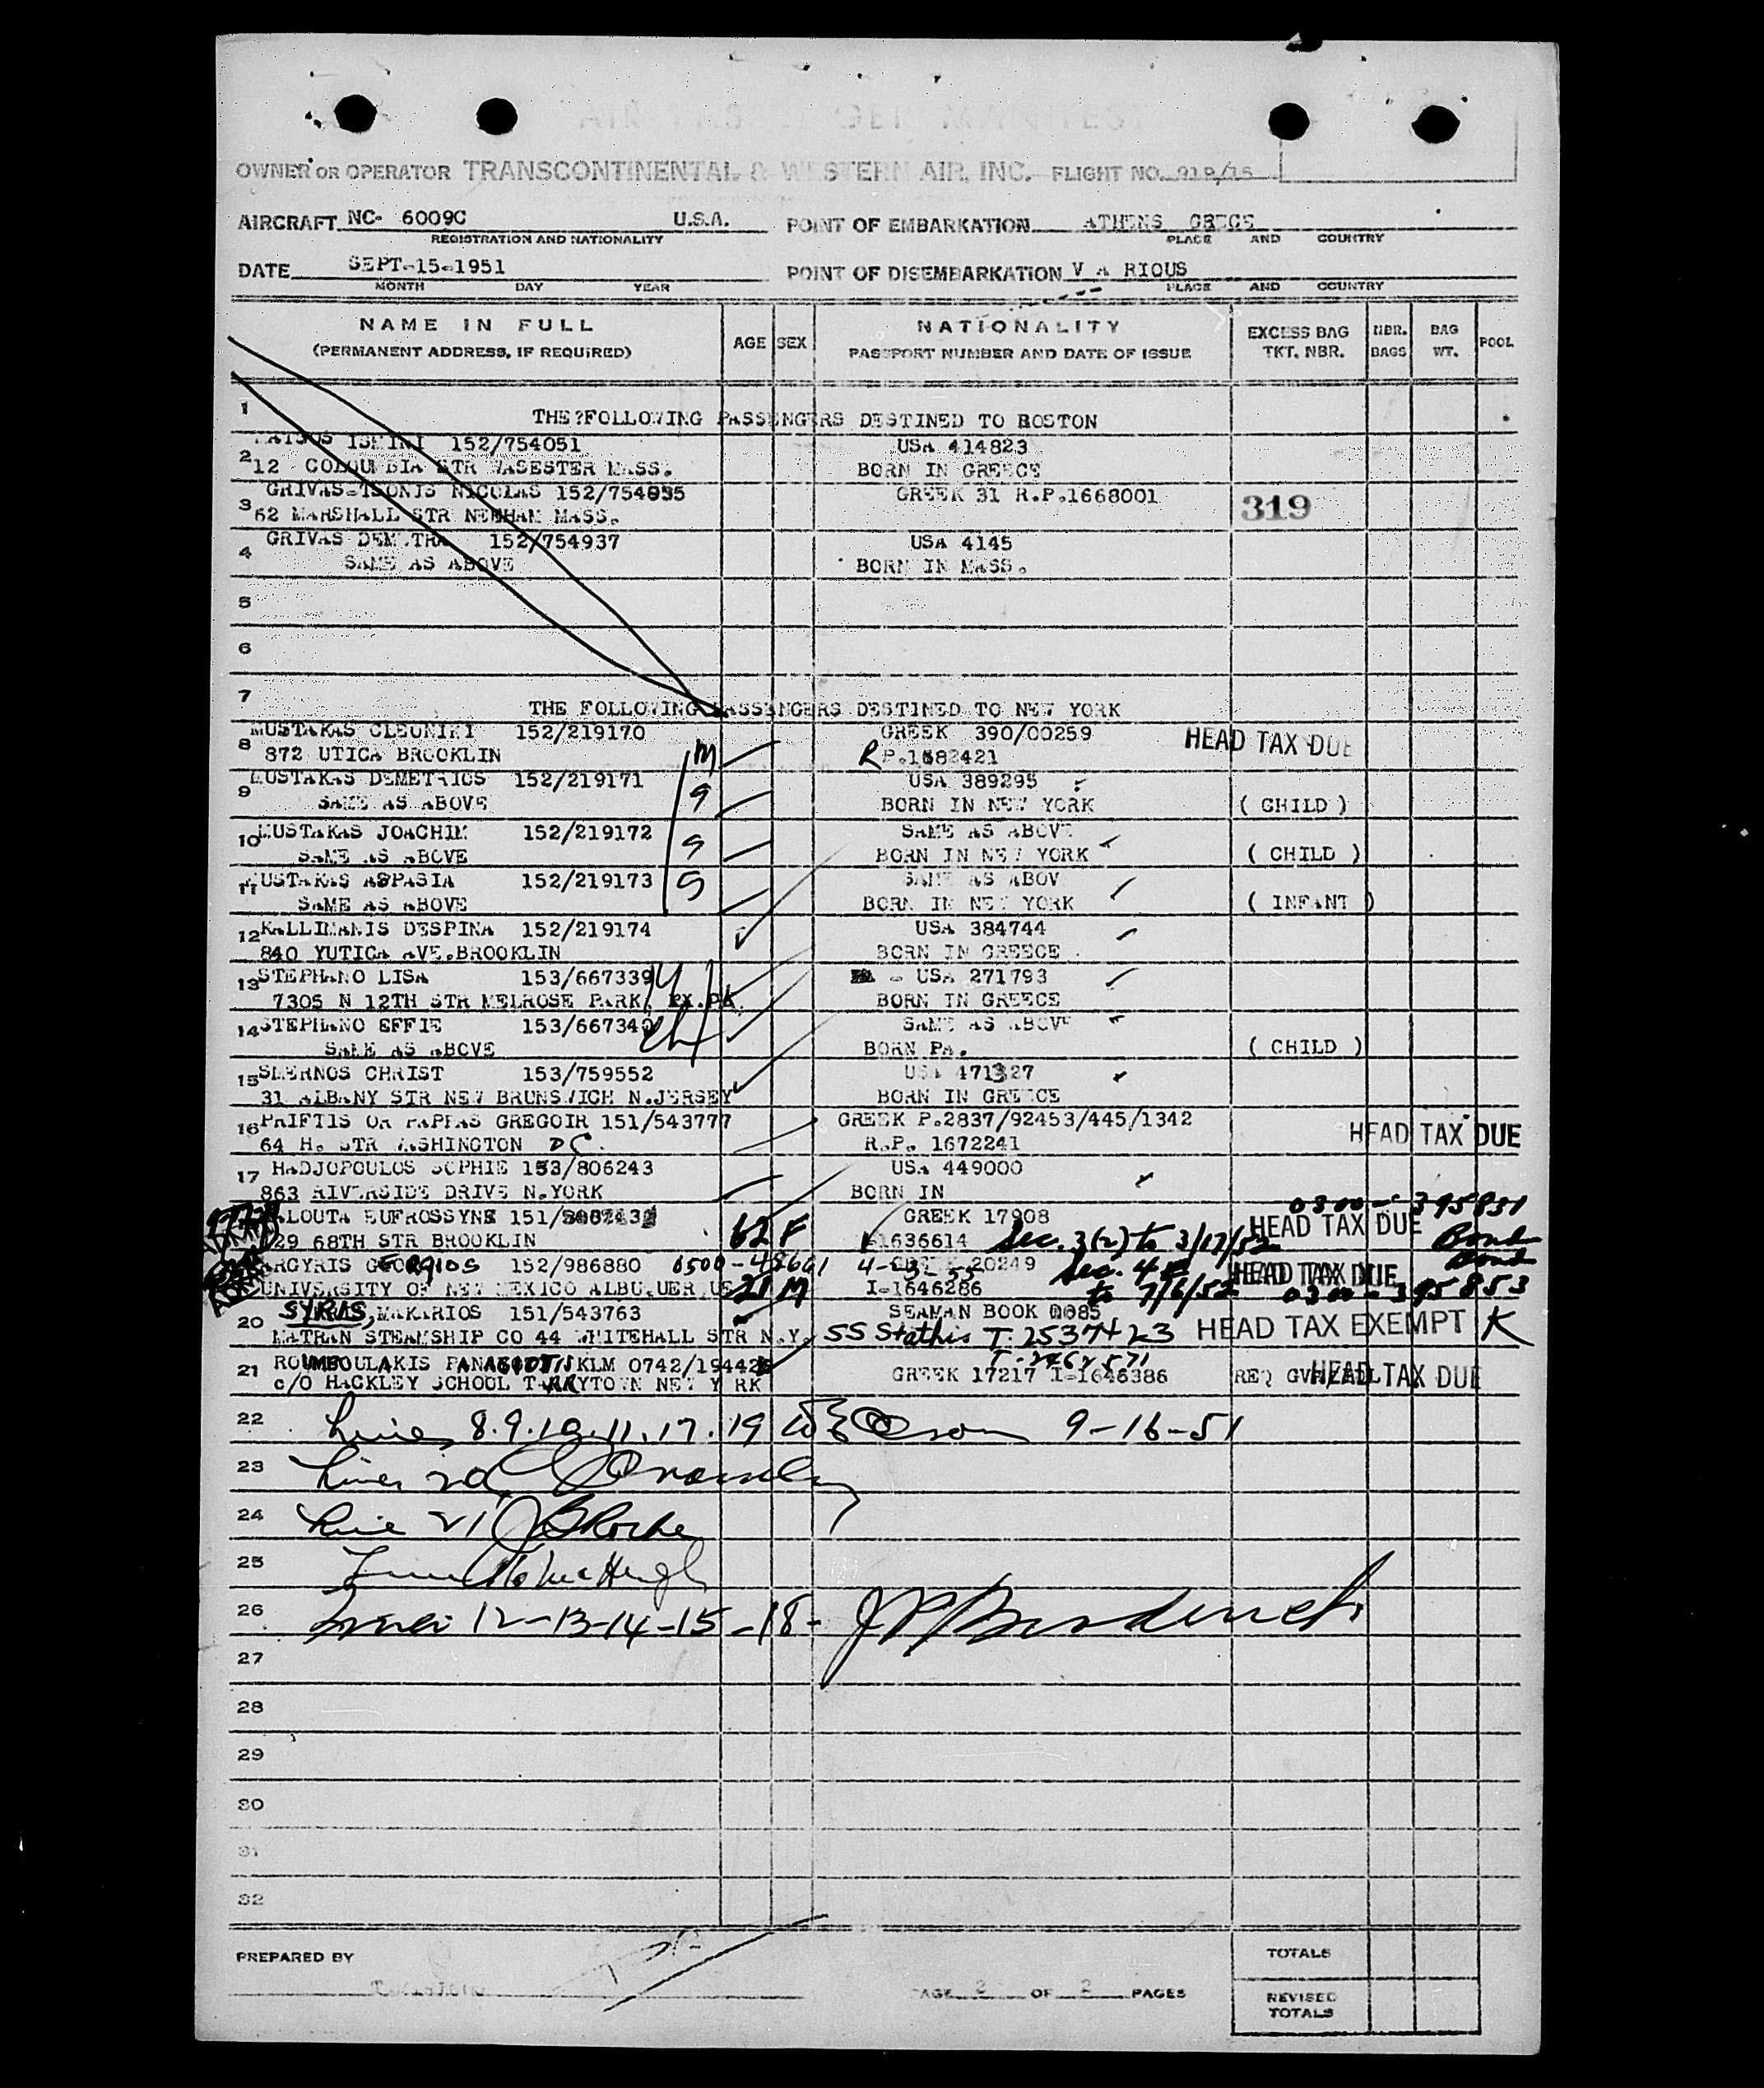 OWNER OR OPERATOR TRANSCONTINENTAL & WESTERN AIR, INC. FLIGHT NO.
AIRCRAFT NC- 6009C U.S.A. POINT OF EMBARKATION ATHENS GRECE
REGISTRATION AND NATIONALITY PLACE AND COUNTRY
DATE SEPT-15-1951 POINT OF DISEMBARKATION V A RIOUS
MONTH DAY YEAR PLACE AND COUNTRY
NAME IN FULL AGE SEX NATIONALITY EXCESS BAG NBR. BAG POOL
(PERMANENT ADDRESS, IF REQUIRED) PASSPORT NUMBER AND DATE OF ISSUE TKT. NBR. BAGS WT.
1
THE?FOLLOWING PASSENGERS DESTINED TO BOSTON
2 ISMINI 152/754051 USA 414823
12 COLOUMBIA STR WASESTER MASS. BORN IN GREECE
3 GRIVAS-TSONIS NICOLAS 152/754935 GREEK 31 R.P.1668001 319
62 MARSHALL STR NEDHAM MASS.
4 GRIVAS 152/754937 USA 4145
SAME AS ABOVE BORN IN MASS.
5
6
7
THE FOLLOWING PASSENGERS DESTINED TO NEW YORK
8 MUSTAKAS CLEONIKI 152/219170 GREEK 390/00259 HEAD TAX DUE
872 UTICA BROOKLIN M R P.1682421
9 MUSTAKAS DEMETRIOS 152/219171 USA 389295
SAME AS ABOVE 9 BORN IN NEW YORK ( CHILD )
10 MUSTAKAS JOACHIM 152/219172 SAME AS ABOVE
SAME AS ABOVE 9 BORN IN NEW YORK ( CHILD )
11 MUSTAKAS ASPASIA 152/219173 SAME AS ABOV
SAME AS ABOVE BORN IN NEW YORK ( INFANT )
12 KALLIMANIS DESPINA 152/219174 USA 384744
840 YUTICA AVE.BROOKLIN BORN IN GREECE
13 STEPHANO LISA 153/667339 - USA 271793
7305 N 12TH STR MELROSE PARK, PA. BORN IN GREECE
14 STEPHANO EFFIE 153/667340 SAME AS ABOVE
SAME AS ABOVE BORN PA. ( CHILD )
15 SMERNOS CHRIST 153/759552 USA 471327
31 ALBANY STR NEW BRUNSWICH N.JERSEY BORN IN GREECE
16 PRIFTIS OR PAPPAS GREGOIR 151/543777 GREEK P.2837/92453/445/1342 HEAD TAX DUE
64 H. STR WASHINGTON DC. R.P. 1672241
17 HADJOPOULOS SOPHIE 153/806243 USA 449000
863 RIVERSIDE DRIVE N.YORK BORN IN
ALOUTA EUFROSSYNE GREEK 17908 0300- 395851 HEAD TAX DUE
29 68TH STR BROOKLIN 62 F 1636614 Sec. 3(2) to 3/17/52 Bond
ARGYRIS GEORGIOS 152/986880 0500-48661 4-3-55 20249 Sec. 4E HEAD TAX DUE Bond
UNIVERSITY OF NEW MEXICO ALBUQUER US 21 M I-1646286 to 7/6/52 0300-395853
20 SYRIS, MAKARIOS 151/543763 SEAMAN BOOK 0085 HEAD TAX EXEMPT K
MATRAN STEAMSHIP CO 44 WHITEHALL STR N.Y. SS Stathis T-2537423
21 ROUMBOULAKIS PANAGIOTIS KLM GREEK 17217 I-1646386 HEAD TAX DUE
c/o HACKLEY SCHOOL TARRYTOWN NEW Y RK
22 Lines 8.9.10.11.17.19 9-16-51
23 Lines 20
24 Line 21 Roche
25
26 Lines 12-13-14-15-18-
27
28
29
30
31
32
PREPARED BY TOTALS
PAGE 2 OF 2 PAGES REVISED TOTALS